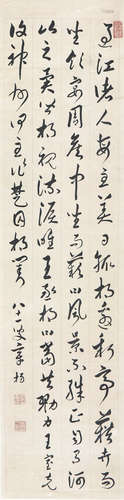 過江諸人每至美日輒相邀新亭藉卉
飲宴周侯中坐而歎風景不殊正自有河
山之異皆相視流淚唯王丞相曰當共勠力王室克
復神州何至作楚囚相對 八十叟章